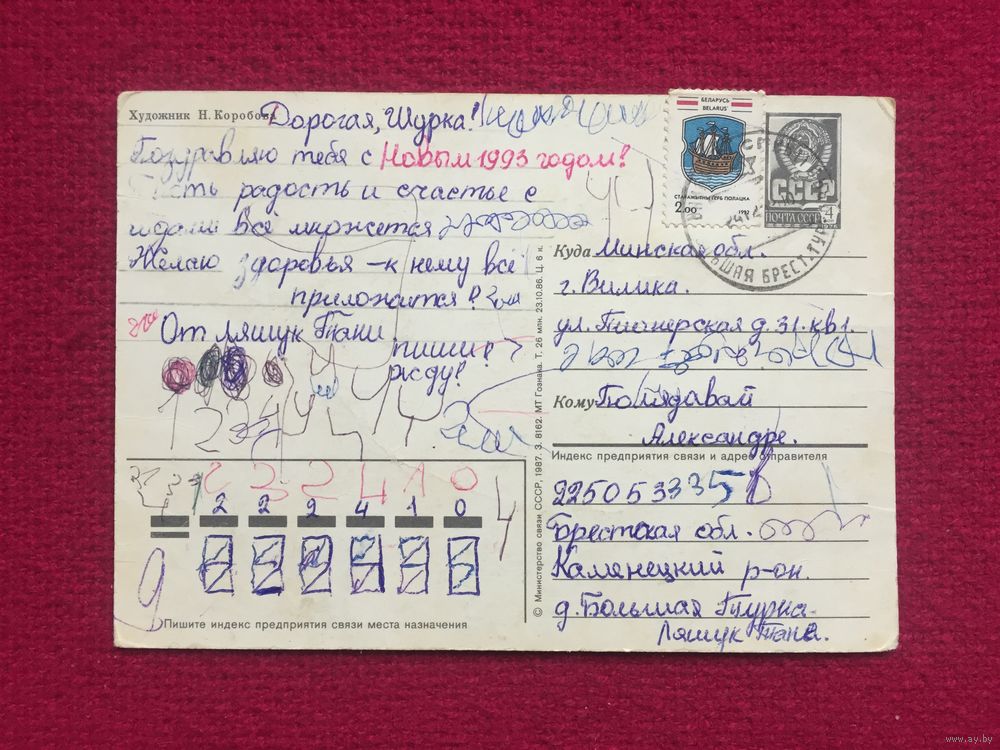 Художник Н. Коробова
Дорогая, Шурка!
Поздравляю тебя с Новым 1993 годом!
радость и счастье с
всё множется
Желаю здоровья – к нему всё
приложится!
От Ляшук Тани
пиши!
жду!
1 2 3 4
2 2 2 4 1 0
2 2 2 4 1 0
Пишите индекс предприятия связи места назначения
© Министерство связи СССР, 1987. З. 8162. МТ Гознака. Т. 26 млн. 23.10.86. Ц. 6 к.
БЕЛАРУСЬ
BELARUS'
СТАРАЖЫТНЫ ГЕРБ ПОЛАЦКА
2.00 1992
СССР
ПОЧТА СССР 4
ШАЯ БРЕСТ.
Куда Минская обл.
г. Вилика.
ул. Пионерская д. 31. кв 1.
Кому
Александре.
Индекс предприятия связи и адрес отправителя
225053
Брестская обл.
Каменецкий р-он.
д. Большая Турна
Ляшук Таня.